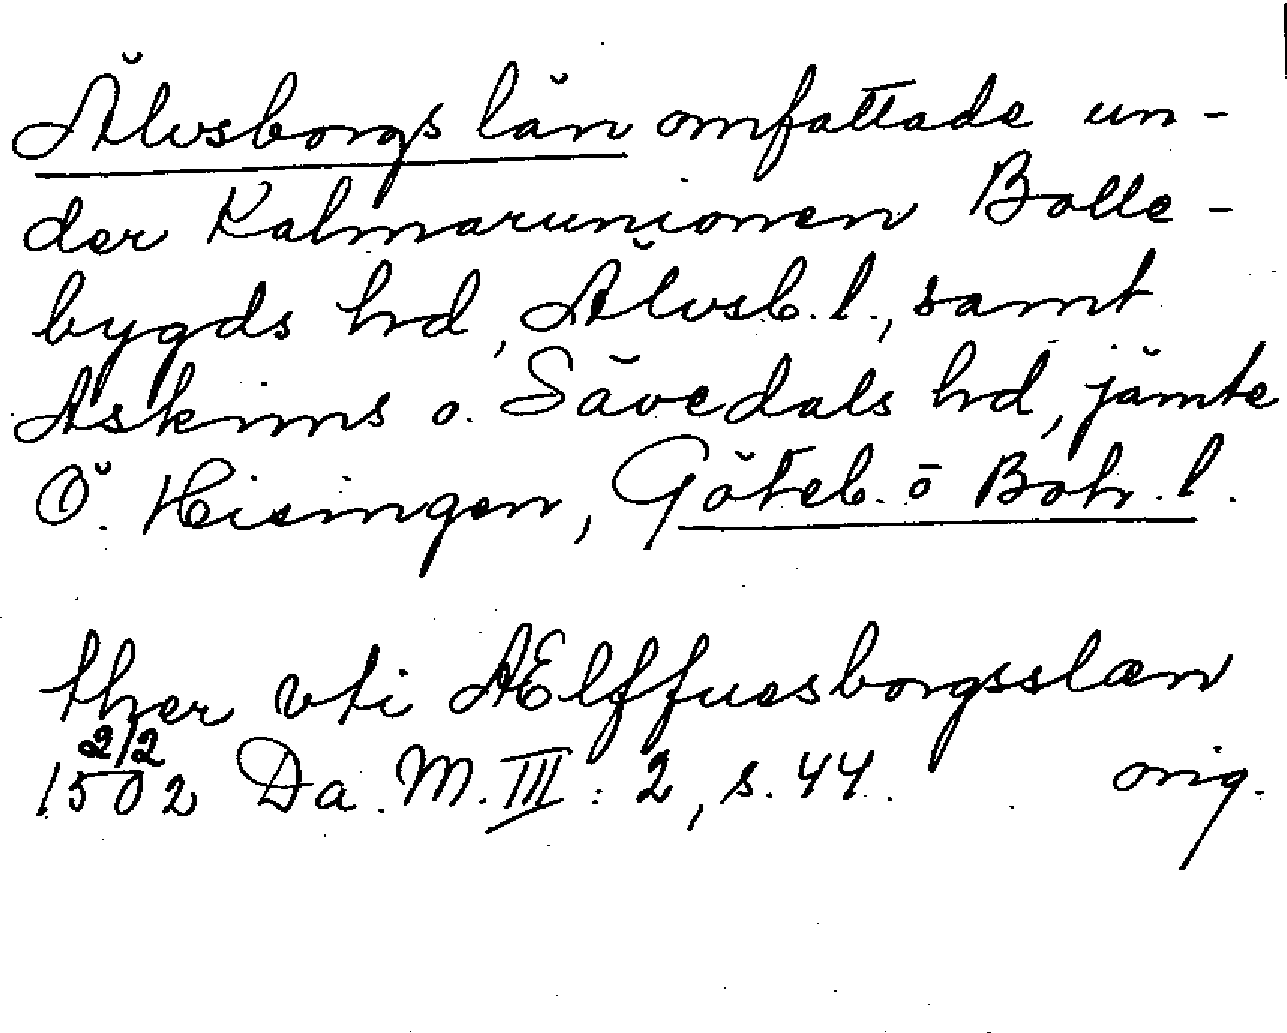 Älvsborgs län omfattade un-
der Kalmarunionen Bolle-
bygds hrd, Älvsb. l., samt
Askims o. Sävedals hrd, jämte
Ö. Hisingen, Göteb. o Boh. l.
ther vti AElffuesborgsslæn
2/2
1502 Da. M. III: 2, s. 44. orig.